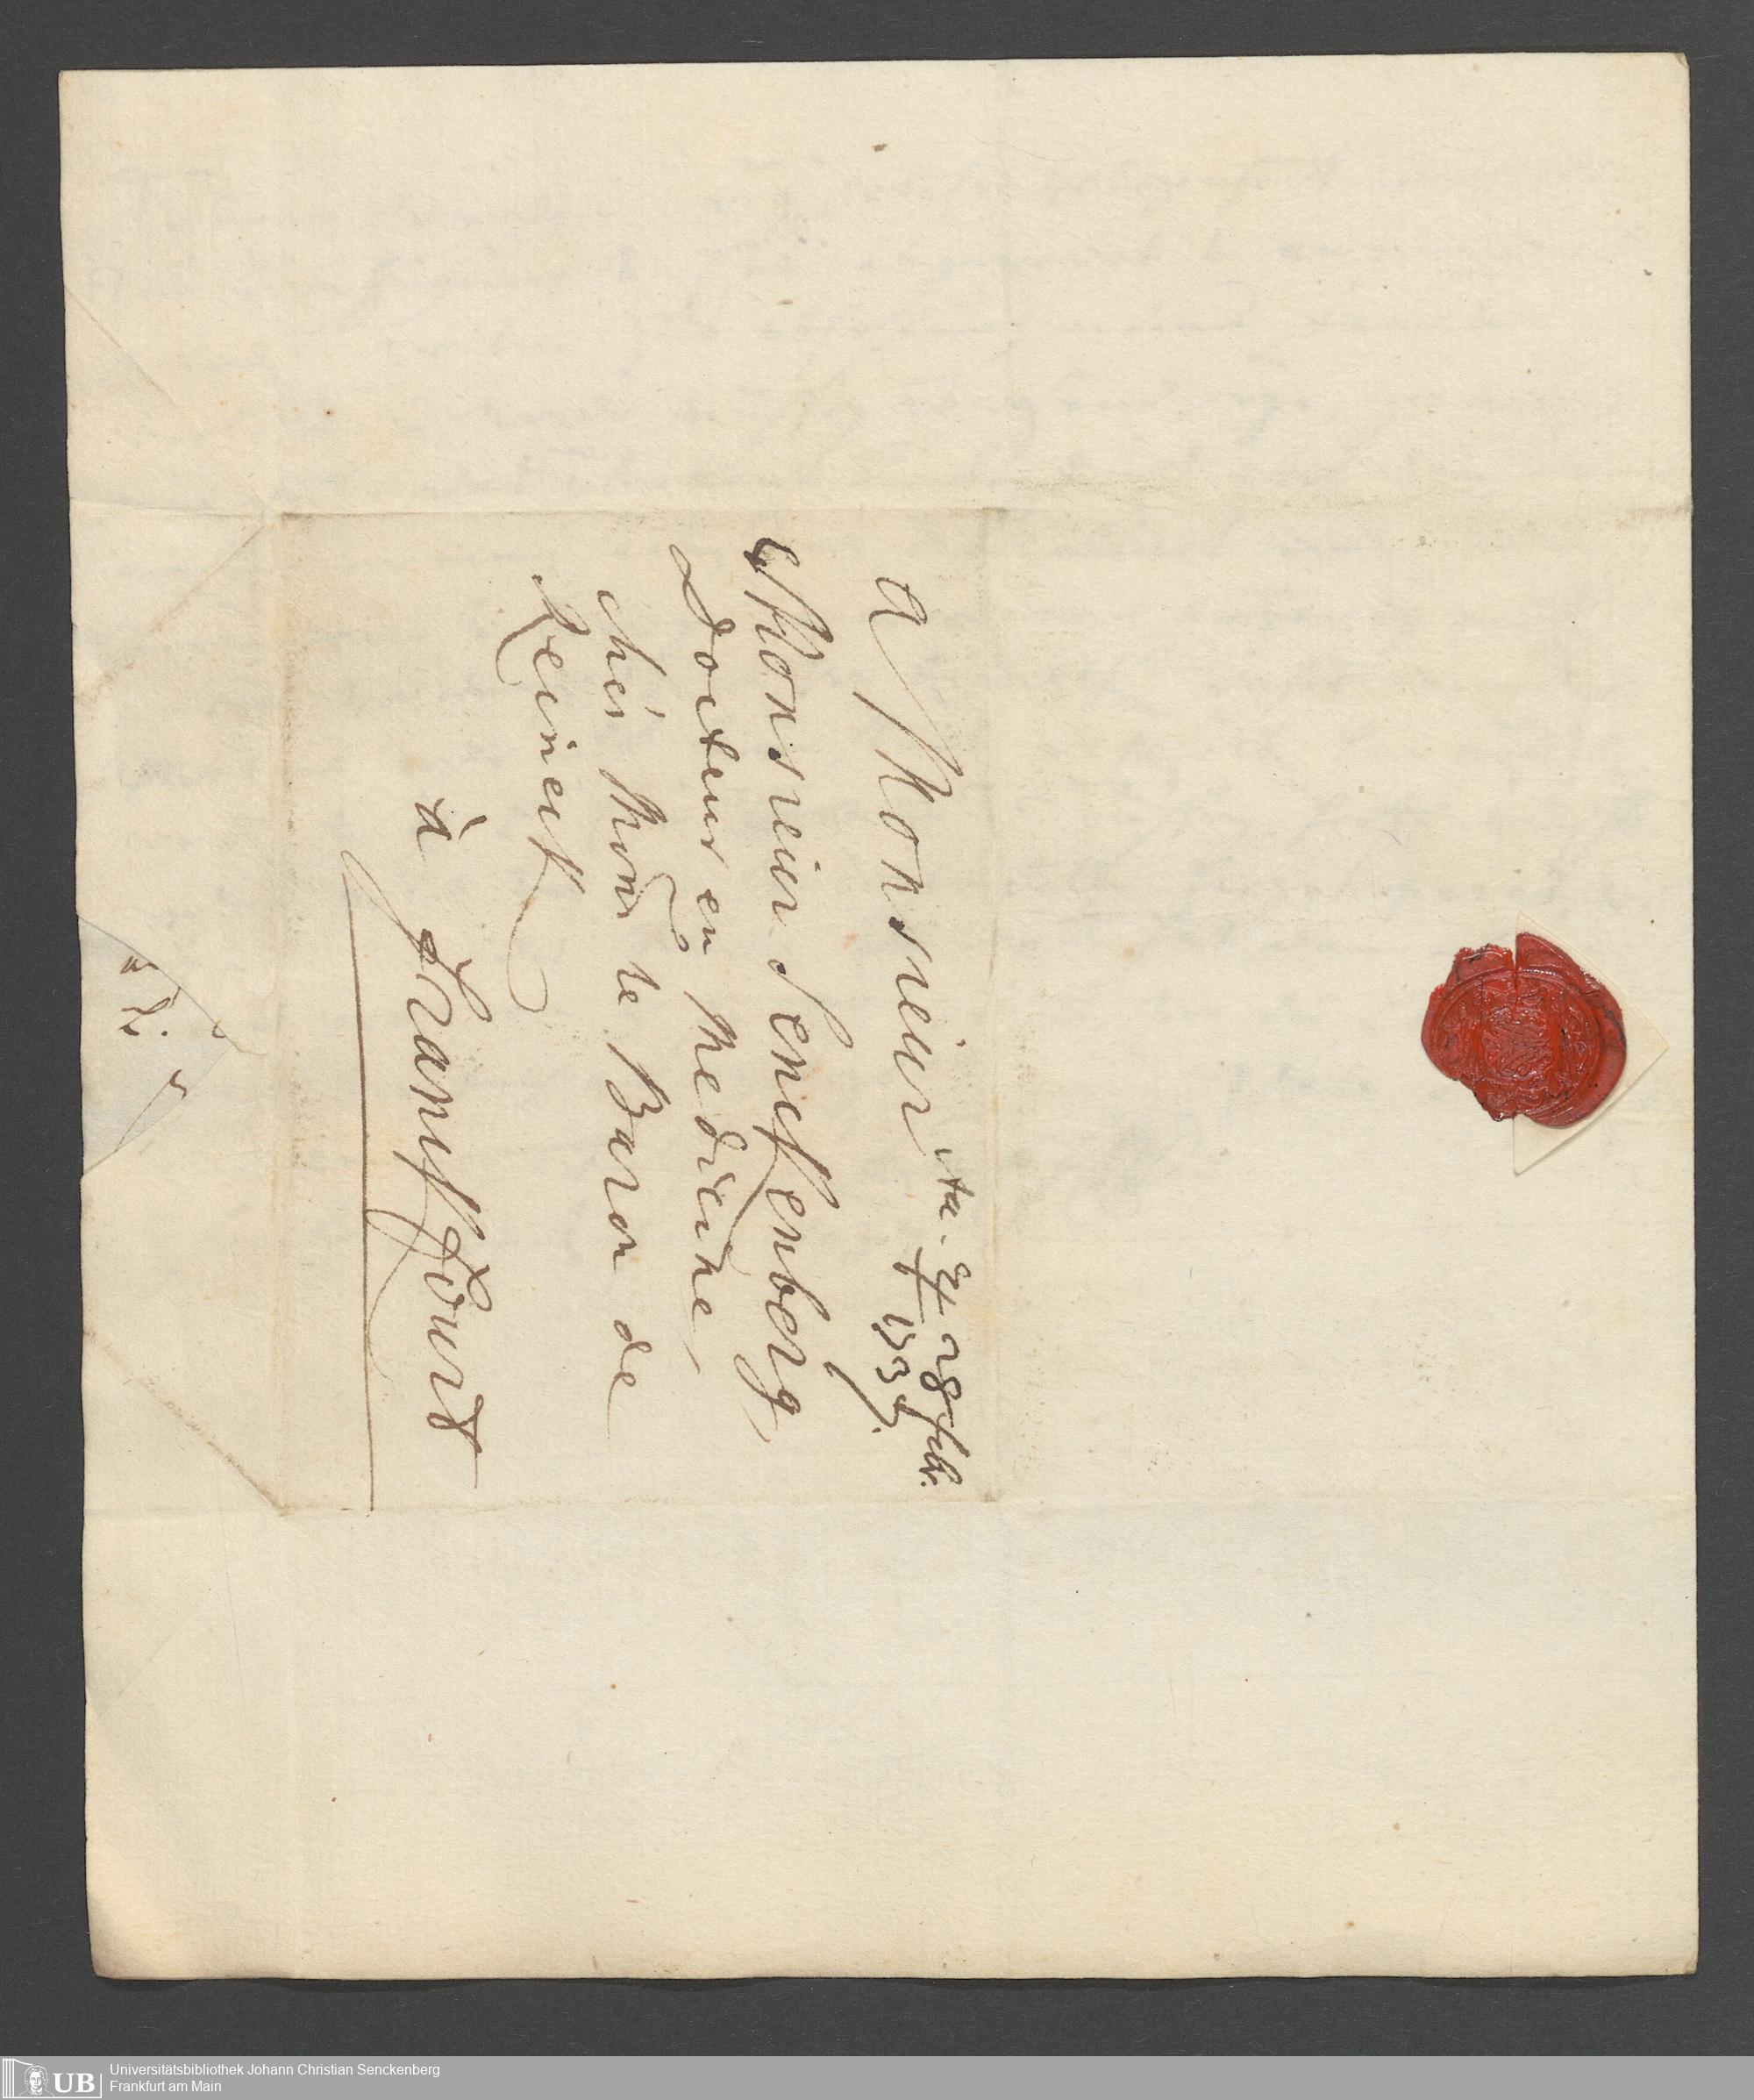 a Monsieur
Monsieur Senckenberg,
Docteur en Medicine,
chés Monsr le Baron de
Reineck
à Franckfourt
28 febr.
Universitätsbibliothek Johann Christian Senckenberg
Frankfurt am Main
UB